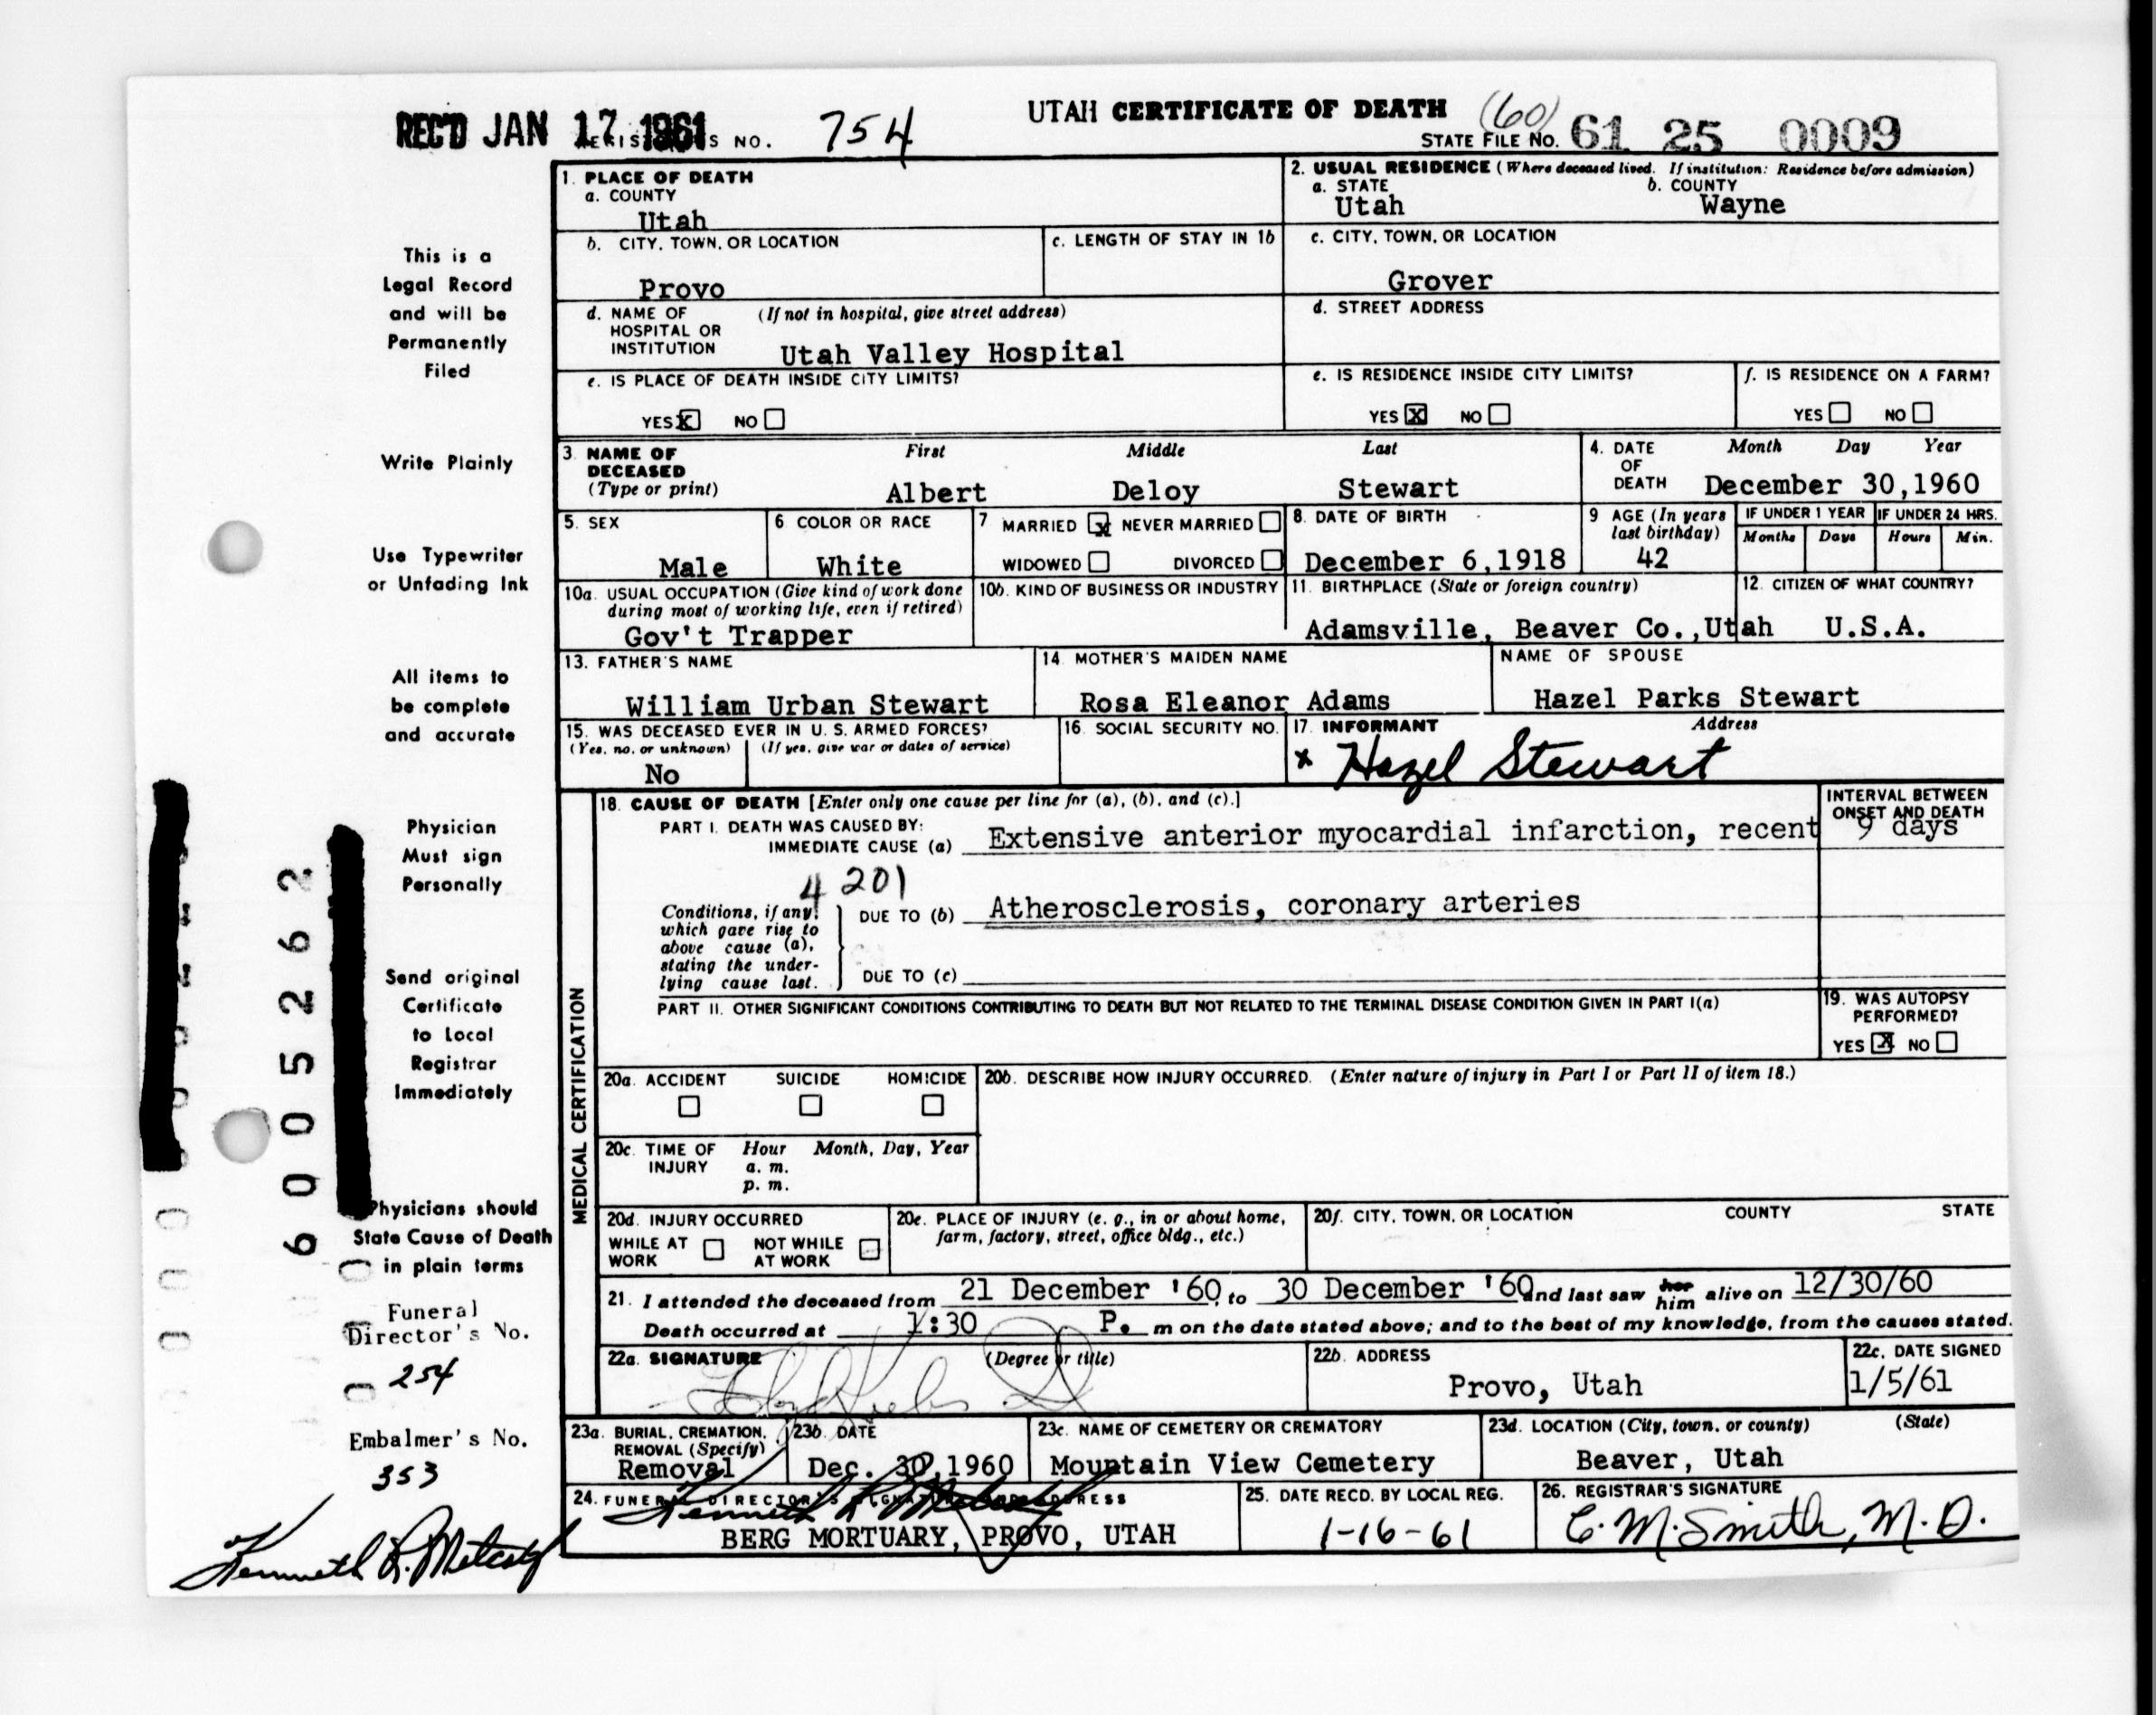 UTAH CERTIFICATE OF DEATH (60)
REC'D JAN 17 1961 NO. 754 STATE FILE NO. 61 25 0009
1. PLACE OF DEATH
a. COUNTY
Utah
2. USUAL RESIDENCE (Where deceased lived. If institution: Residence before admission)
a. STATE b. COUNTY
Utah Wayne
b. CITY, TOWN, OR LOCATION c. LENGTH OF STAY IN 1b
Provo
c. CITY, TOWN, OR LOCATION
Grover
d. NAME OF HOSPITAL OR INSTITUTION (If not in hospital, give street address)
Utah Valley Hospital
d. STREET ADDRESS
e. IS PLACE OF DEATH INSIDE CITY LIMITS?
YES X NO
e. IS RESIDENCE INSIDE CITY LIMITS? f. IS RESIDENCE ON A FARM?
YES X NO YES NO
3. NAME OF DECEASED (Type or print) First Middle Last
Albert Deloy Stewart
4. DATE OF DEATH Month Day Year
December 30,1960
5. SEX 6. COLOR OR RACE
Male White
7 MARRIED X NEVER MARRIED
WIDOWED DIVORCED
8. DATE OF BIRTH
December 6,1918
9 AGE (In years last birthday)
42
IF UNDER 1 YEAR IF UNDER 24 HRS.
Months Days Hours Min.
10a. USUAL OCCUPATION (Give kind of work done during most of working life, even if retired)
Gov't Trapper
10b. KIND OF BUSINESS OR INDUSTRY
11. BIRTHPLACE (State or foreign country)
Adamsville, Beaver Co.,Utah
12. CITIZEN OF WHAT COUNTRY?
U.S.A.
13. FATHER'S NAME
William Urban Stewart
14. MOTHER'S MAIDEN NAME
Rosa Eleanor Adams
NAME OF SPOUSE
Hazel Parks Stewart
15. WAS DECEASED EVER IN U. S. ARMED FORCES?
(Yes, no, or unknown) (If yes, give war or dates of service)
No
16. SOCIAL SECURITY NO.
17. INFORMANT Address
x Hazel Stewart
MEDICAL CERTIFICATION
18. CAUSE OF DEATH [Enter only one cause per line for (a), (b), and (c).]
INTERVAL BETWEEN ONSET AND DEATH
PART I. DEATH WAS CAUSED BY:
IMMEDIATE CAUSE (a) Extensive anterior myocardial infarction, recent 9 days
4 201
Conditions, if any, which gave rise to above cause (a), stating the underlying cause last.
DUE TO (b) Atherosclerosis, coronary arteries
DUE TO (c)
PART II. OTHER SIGNIFICANT CONDITIONS CONTRIBUTING TO DEATH BUT NOT RELATED TO THE TERMINAL DISEASE CONDITION GIVEN IN PART I(a)
19. WAS AUTOPSY PERFORMED?
YES X NO
20a. ACCIDENT SUICIDE HOMICIDE
20b. DESCRIBE HOW INJURY OCCURRED. (Enter nature of injury in Part I or Part II of item 18.)
20c. TIME OF INJURY Hour Month, Day, Year
a. m.
p. m.
20d. INJURY OCCURRED
WHILE AT WORK NOT WHILE AT WORK
20e. PLACE OF INJURY (e. g., in or about home, farm, factory, street, office bldg., etc.)
20f. CITY, TOWN, OR LOCATION COUNTY STATE
21. I attended the deceased from 21 December '60, to 30 December '60 and last saw her him alive on 12/30/60
Death occurred at 1:30 P. m on the date stated above; and to the best of my knowledge, from the causes stated.
22a. SIGNATURE (Degree or title)
22b. ADDRESS
Provo, Utah
22c. DATE SIGNED
1/5/61
23a. BURIAL, CREMATION, REMOVAL (Specify)
Removal
23b. DATE
Dec. 30,1960
23c. NAME OF CEMETERY OR CREMATORY
Mountain View Cemetery
23d. LOCATION (City, town, or county) (State)
Beaver, Utah
24. FUNERAL DIRECTOR'S SIGNATURE ADDRESS
BERG MORTUARY, PROVO, UTAH
25. DATE RECD. BY LOCAL REG.
1-16-61
26. REGISTRAR'S SIGNATURE
C. M. Smith, M. D.
This is a
Legal Record
and will be
Permanently
Filed
Write Plainly
Use Typewriter
or Unfading Ink
All items to
be complete
and accurate
Physician
Must sign
Personally
Send original
Certificate
to Local
Registrar
Immediately
Physicians should
State Cause of Death
in plain terms
Funeral
Director's No.
254
Embalmer's No.
353
Kenneth R. Metcalf
6005262